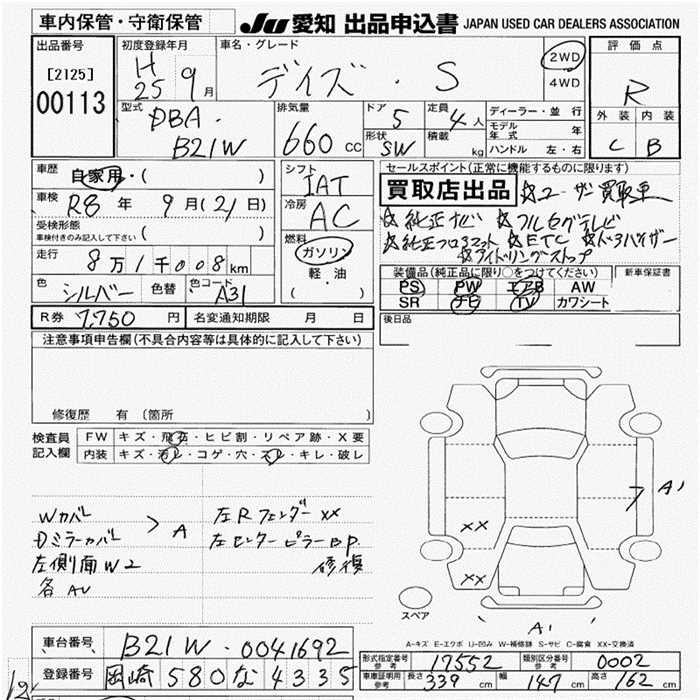 車内保管・守衛保管
JU 愛知 出品申込書 JAPAN USED CAR DEALERS ASSOCIATION
出品番号
[2125]
00113
初度登録年月
H 25 9月
車名・グレード
デイズ・S
2WD
4WD
評価点
R
外装 内装
C B
型式
DBA-
B21W
排気量
660 cc
ドア 5
形状 SW
定員 4人
積載 kg
ディーラー・並行
モデル年式 年
ハンドル 左・右
車歴 自家用・( )
車検 R8年 9月(21日)
受検形態
車検付きのみ記入して下さい ( )
走行 8万1千008km
色 シルバー 色替 色コード A31
シフト
IAT
冷房
AC
燃料
ガソリン
軽・油
( )
セールスポイント(正常に機能するものに限ります)
買取店出品 ☆ユーザー買取車
☆純正ナビ ☆フルセグテレビ
☆純正フロアマット ☆ETC ☆ドアバイザー
☆アイドリングストップ
装備品(純正品に限り○をつけてください) 新車保証書
PS PW エアB AW
SR ナビ TV カワシート
R券 7,750円 名変通知期限 月 日
後日品
注意事項申告欄(不具合内容等は具体的に記入して下さい)
修復歴 有(箇所 )
検査員記入欄
FW キズ・飛石・ヒビ割・リペア跡・X要
内装 キズ・汚レ・コゲ・穴・スレ・キレ・破レ
Wカバル
Dミラーカバル > A
左側面W2
各AU
左Rフェンダー XX
左センターピラーB.P.
修復
A1
XX
XX
スペア
A1
A-キズ E-エクボ U-凹み W-補修跡 S-サビ C-腐食 XX-交換済
車台番号 B21W-0041692
登録番号 岡崎 580 な 4335
形式指定番号 参考 17552 類別区分番号 参考 0002
車庫証明用 参考 長さ 339 cm 幅 147 cm 高さ 162 cm